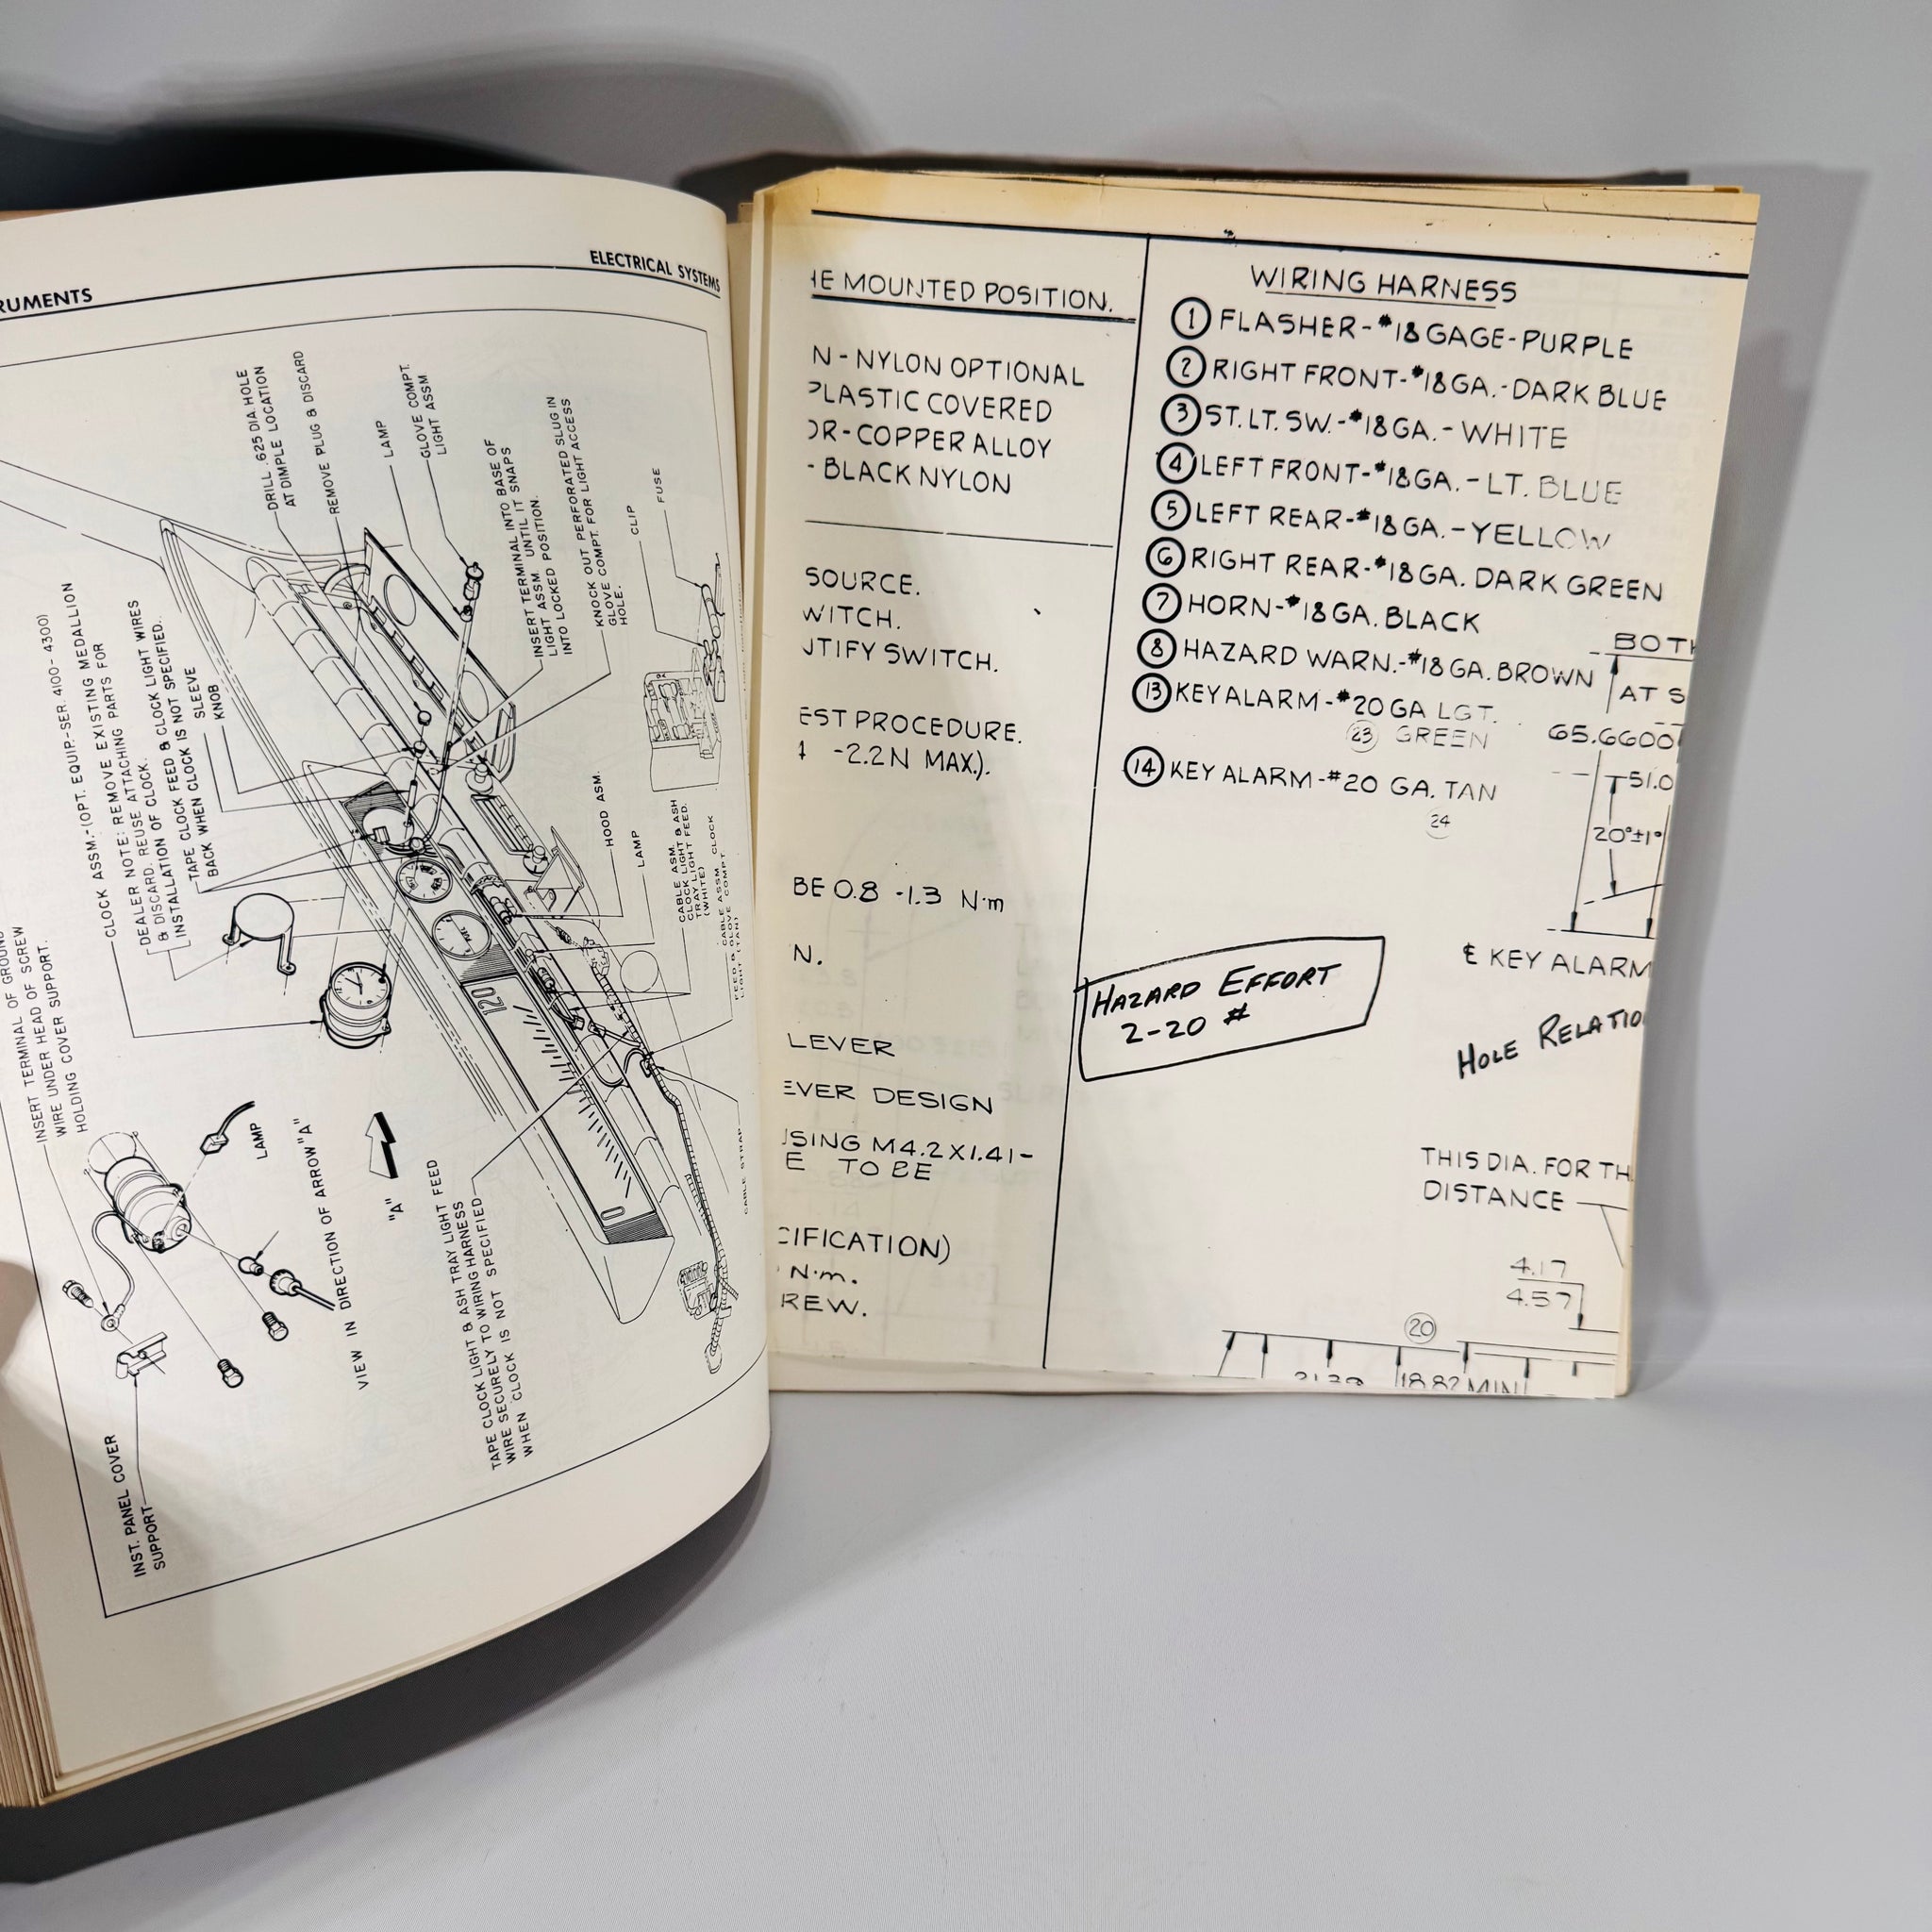 RUMENTS
ELECTRICAL SYSTEMS
INSERT TERMINAL OF GROUND
WIRE UNDER HEAD OF SCREW
HOLDING COVER SUPPORT.
CLOCK ASSM.-(OPT. EQUIP.-SER. 4100-4300)
DEALER NOTE: REMOVE EXISTING MEDALLION
& DISCARD. REUSE ATTACHING PARTS FOR
INSTALLATION OF CLOCK.
TAPE CLOCK FEED & CLOCK LIGHT WIRES
BACK WHEN CLOCK IS NOT SPECIFIED.
SLEEVE
KNOB
DRILL .625 DIA. HOLE
AT DIMPLE LOCATION
REMOVE PLUG & DISCARD
LAMP
GLOVE COMPT.
LIGHT ASSM
INSERT TERMINAL INTO BASE OF
LIGHT ASSM. UNTIL IT SNAPS
INTO LOCKED POSITION.
KNOCK OUT PERFORATED SLUG IN
GLOVE COMPT. FOR LIGHT ACCESS
HOLE.
CLIP
FUSE
HOOD ASM.
LAMP
CABLE ASM.
CLOCK LIGHT & ASH
TRAY LIGHT FEED.
(WHITE)
CABLE ASSM. CLOCK
FEED & GLOVE COMPT.
LIGHT (TAN)
CABLE STRAP
120
0
LAMP
VIEW IN DIRECTION OF ARROW "A"
"A"
TAPE CLOCK LIGHT & ASH TRAY LIGHT FEED
WIRE SECURELY TO WIRING HARNESS
WHEN CLOCK IS NOT SPECIFIED
INST. PANEL COVER
SUPPORT
HE MOUNTED POSITION.
N-NYLON OPTIONAL
PLASTIC COVERED
OR-COPPER ALLOY
- BLACK NYLON
SOURCE.
WITCH.
UTIFY SWITCH.
EST PROCEDURE.
-2.2N MAX.).
BE 0.8 -1.3 N·m
N.
LEVER
EVER DESIGN
USING M4.2X1.41-
E TO BE
CIFICATION)
N·m.
REW.
WIRING HARNESS
1 FLASHER-#18 GAGE-PURPLE
2 RIGHT FRONT-#18GA.-DARK BLUE
3 ST. LT. SW.-#18GA.- WHITE
4 LEFT FRONT-#18GA.- LT. BLUE
5 LEFT REAR-#18GA.-YELLOW
6 RIGHT REAR-#18GA. DARK GREEN
7 HORN-#18GA. BLACK
8 HAZARD WARN.-#18GA. BROWN
13 KEY ALARM-#20GA LGT.
23 GREEN
14 KEY ALARM-#20 GA. TAN
24
BOTH
AT S
65.6600
51.0
20°±1°
HAZARD EFFORT
2-20 #
℄ KEY ALARM
HOLE RELATIO
THIS DIA. FOR TH
DISTANCE
4.17
4.57
20
18.82 MIN